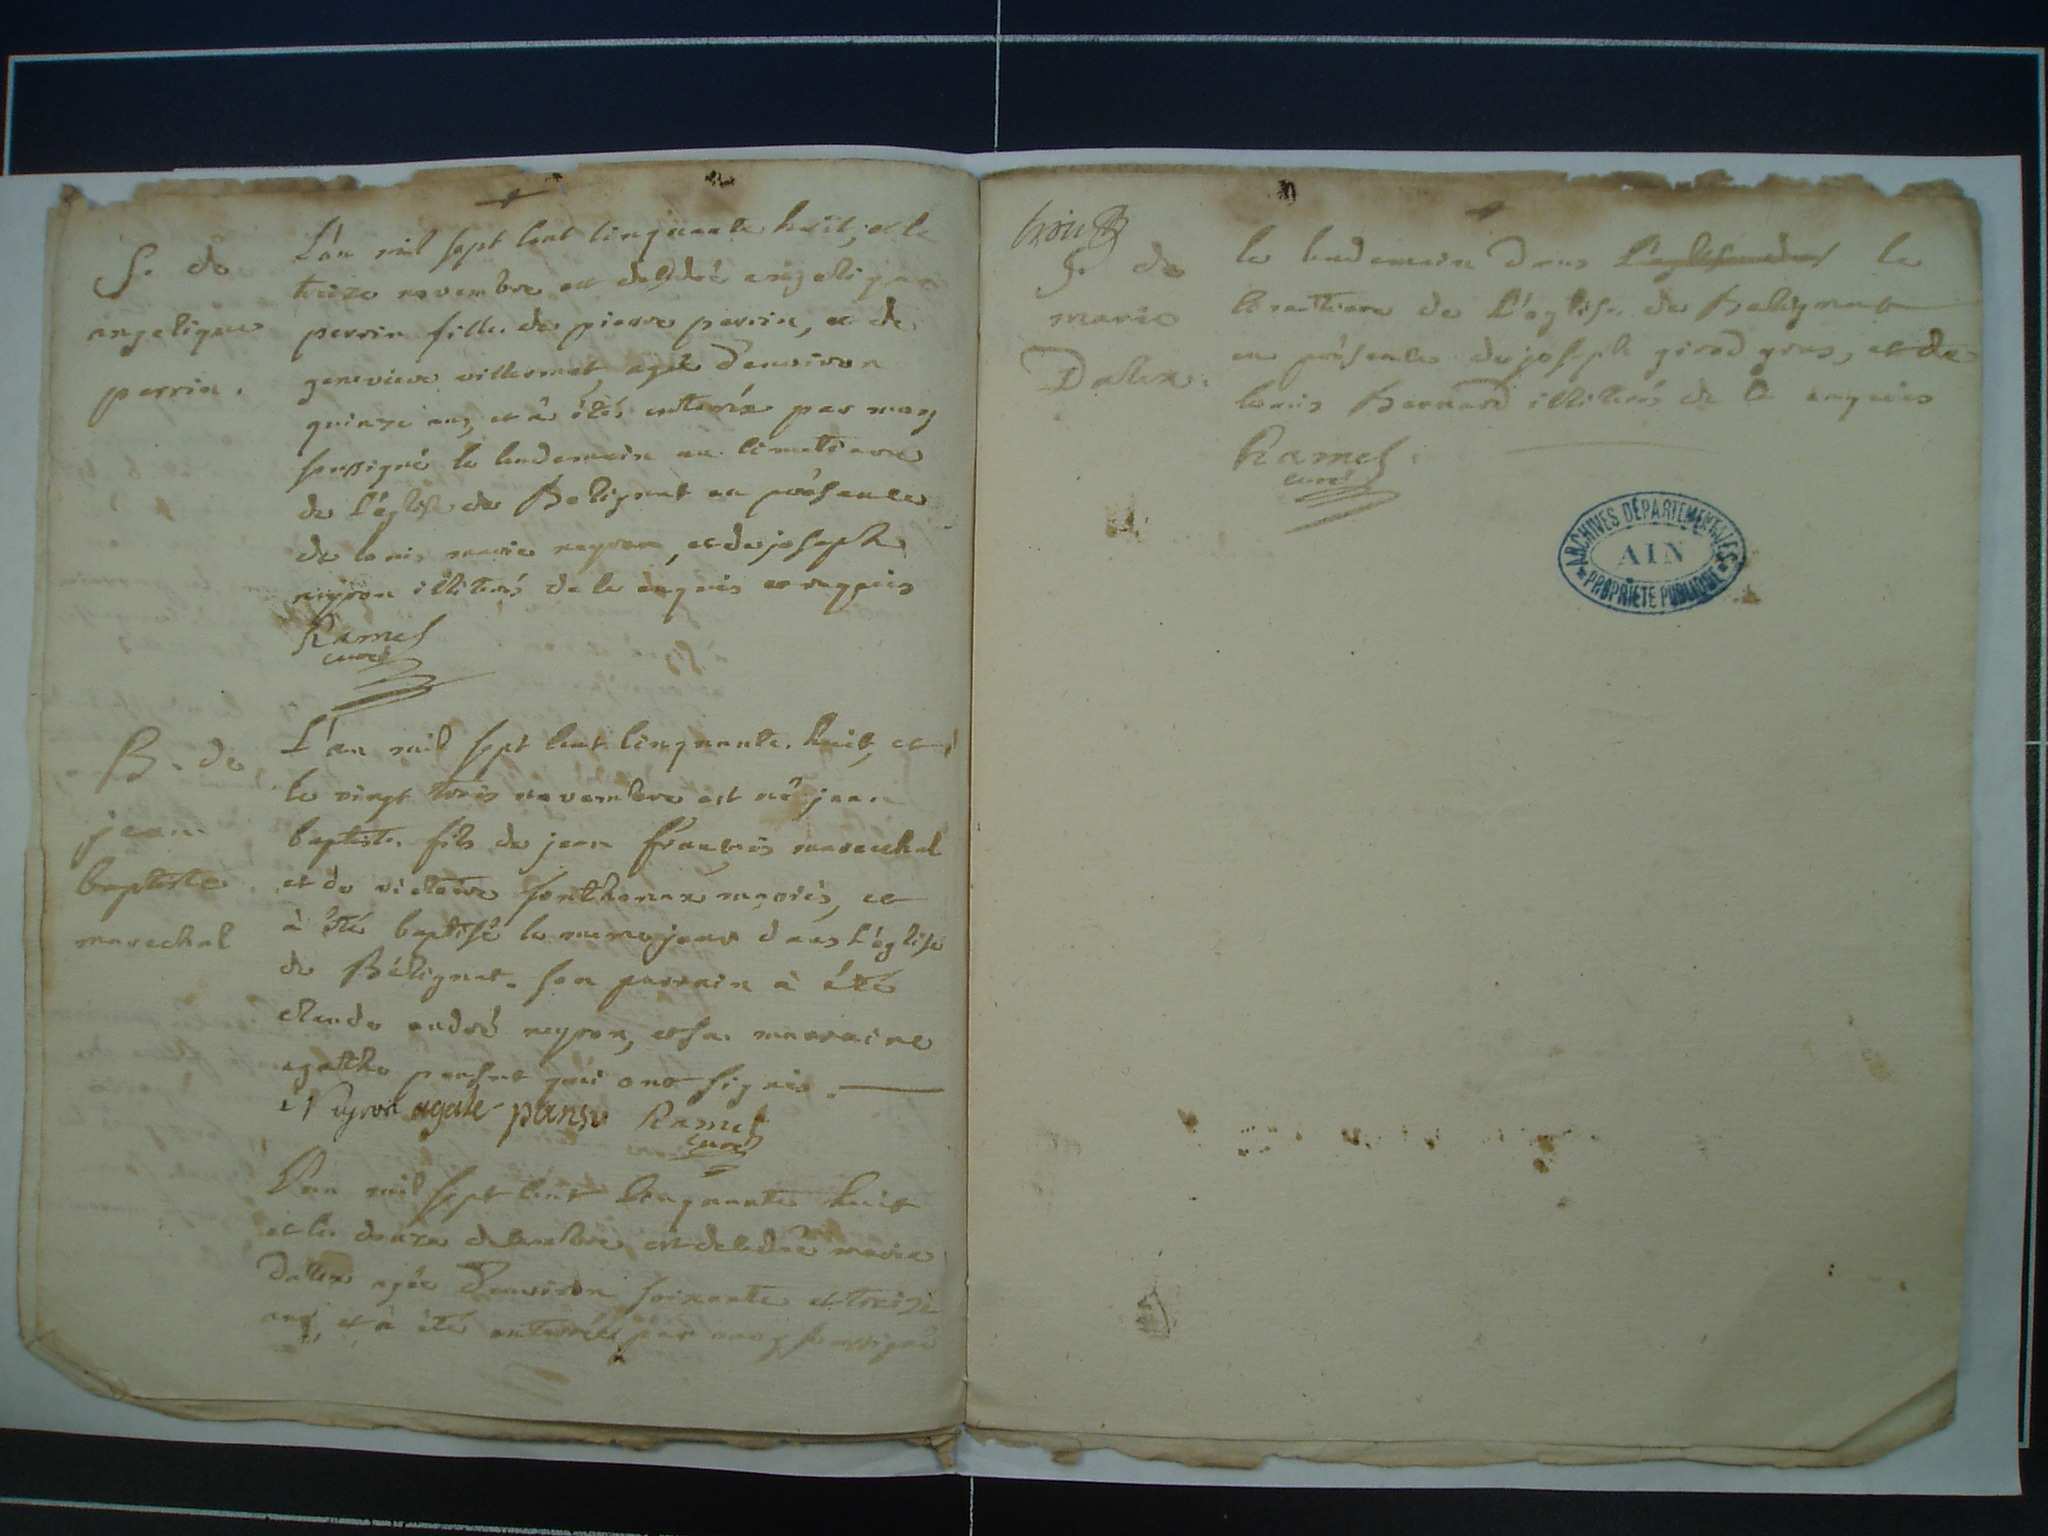 S. de
angelique
perrin.
L'an mil sept cent cinquante huit, et le
treize novembre est decedeé angelique
perrin fille de pierre perrin, et de
genevieve villermet, agée d'environ
quinze ans, et à étés enterrée par moy
soussigné le lendemain au cimetiere
de L'église de Belignat en présence
de louis marie neyron, et de joseph
neyron illiterés de ce enquis et requis
Ramel
curé
B. de
jean
baptiste
marechal
L'an mil sept cent cinquante. huit, et
le vingt trois novembre est né jean
baptiste. fils de jean François marechal
et de victoire sonthonax mariés, et
à été baptisé le meme jour dans L'église
de Bélignat. son parrain à été
claude andré neyron, et sa marraine
agathe pansut qui ont signés.
Neyron agate pansu Ramel
curé
L'an mil sept cent cinquante huit
et le douze decembre est decedeé marie
Dalex agée d'environ soixante et treize
ans, et à été enterrée par moy soussigné
S. de
marie
Dalex.
le lendemain dans L'eglise de le
cimetiere de L'église de Belignat
en présence de joseph girod gras, et de
louis Bernard illiterés de ce enquis
Ramel
curé
ARCHIVES DÉPARTEMENTALES
AIN
PROPRIÉTÉ PUBLIQUE